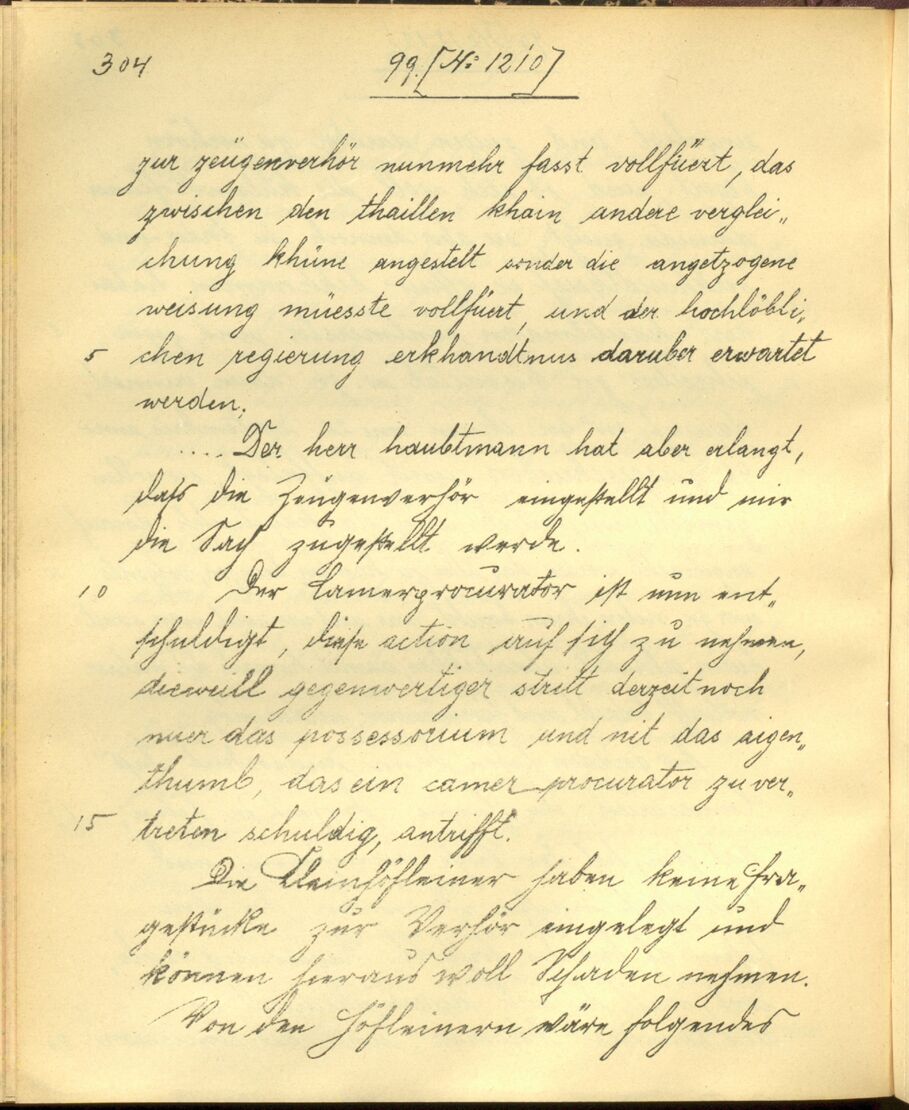 304
99. [№ 1210]
zur zeügenverhör nunmehr fasst vollfüert, das
zwischen den thaillen khain andere verglei„
chung khüne angestelt sonder die angetzogene
weisung müesste vollfüert, und der hochlöbli„
5 chen regierung erkhandtnus daruber erwartet
werden.
.... Der herr haubtmann hat aber erlangt,
daß die Zeugenverhör eingestellt und mir
die Sach zugestellt werde.
10 Der Camerprocurator ist nun ent„
schuldigt, diese action auf sich zu nehmen,
dieweill gegenwertiger stritt derzeit noch
nuer das possessorium und nit das aigen„
thumb, das ein camer procurator zu ver„
15 treten schuldig, antrifft.
Die Kleinhöfleiner haben keine Fra„
gestücke zur Verhör eingelegt und
können hieraus woll Schaden nehmen.
Von den Höfleinern wäre folgendes